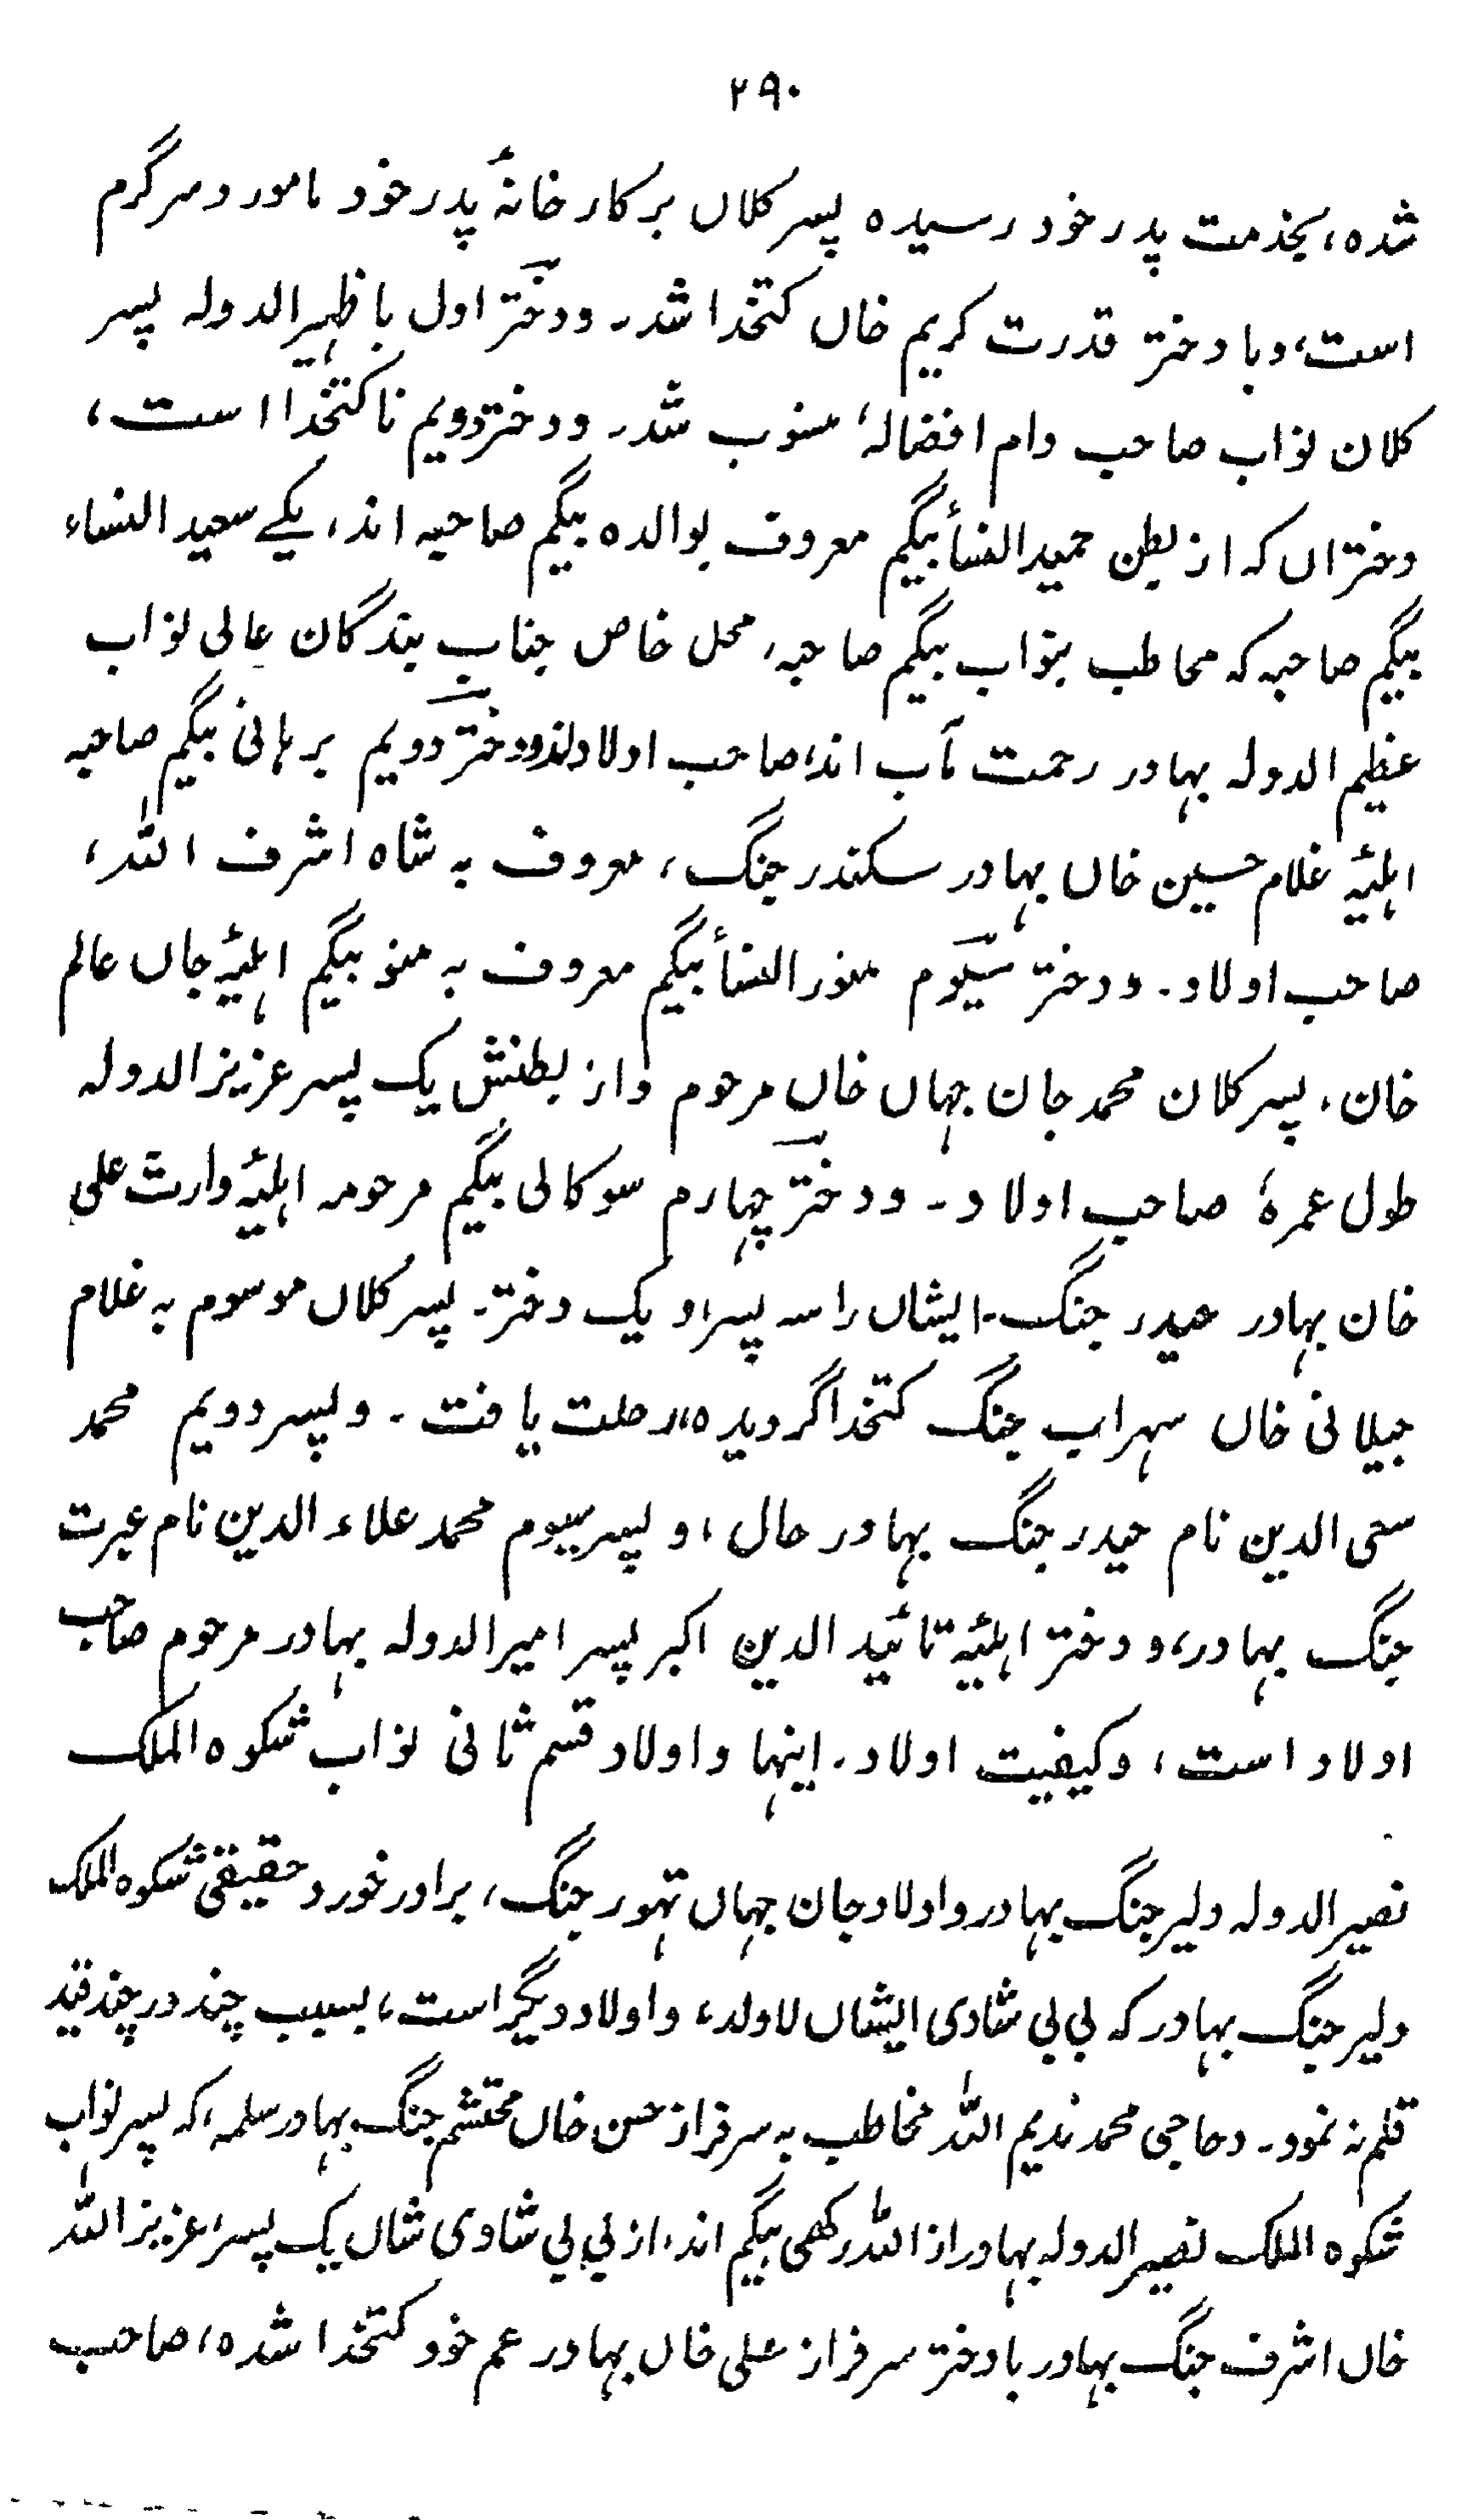 ۲۹۰
شده، بخدمت پدر خود رسیده پسر کلاں بر کارخانهٔ پدر خود مامور و سرگرم
است، و با دختر قدرت کریم خاں کتخدا شد۔ و دختر اول با ظہیر الدولہ پسر
کلان نواب صاحب دام افضالہٗ منسوب شد۔ و دختر دویم ناکتخدا است،
دختراں کہ از بطن حمید النسأ بیگم معروف بوالدہ بیگم صاحبہ اند، یکے سعید النساء
بیگم صاحبہ کہ مخاطب بنواب بیگم صاحبہ، محل خاص جناب بندگان عالی نواب
عظیم الدولہ بہادر رحمت مآب اند، صاحب اولاد اند و دختر دویم برہانی بیگم صاحبہ
اہلیۂ غلام حسین خاں بہادر سکندر جنگ، معروف بہ شاہ اشرف اللہ،
صاحب اولاد۔ و دختر سیوم منور النسأ بیگم معروف بہ منو بیگم اہلیۂ جاں عالم
خان، پسر کلان محمد جان جہاں خاں مرحوم و از بطنش یک پسر عزیز الدولہ
طول عمرہٗ صاحب اولاد۔ و دختر چہارم سوکالی بیگم مرحومہ اہلیۂ وارث علی
خان بہادر حیدر جنگ۔ ایشاں را سہ پسر، و یک دختر۔ پسر کلاں موسوم بہ غلام
جیلانی خاں سہراب جنگ کتخدا گردیدہ، رحلت یافت۔ و پسر دویم محمد
سخی الدین نام حیدر جنگ بہادر حال، و پسر سیوم محمد علاء الدین نام غیرت
جنگ بہادر، و دختر اہلیۂ تائید الدین اکبر پسر امیر الدولہ بہادر مرحوم صاحب
اولاد است، و کیفیت اولاد۔ اینہا و اولاد قسم ثانی نواب شکوہ الملک
نصیر الدولہ دلیر جنگ بہادر و اولاد جان جہاں تہور جنگ، برادر خورد حقیقی شکوہ الملک
دلیر جنگ بہادر کہ بی بی شادی ایشاں لاولد، و اولاد دیگر است، بسبب چند در چند قید
قلم نہ نمود۔ و حاجی محمد ندیم اللہ مخاطب بہ سرفراز حسن خاں محتشم جنگ بہادر سلمہ، کہ پسر نواب
شکوہ الملک نصیر الدولہ بہادر از اللہ رکھی بیگم اند، از بی بی شادی شاں یک پسر، عزیز اللہ
خاں اشرف جنگ بہادر با دختر سرفراز علی خاں بہادر عم خود کتخدا شدہ، صاحب